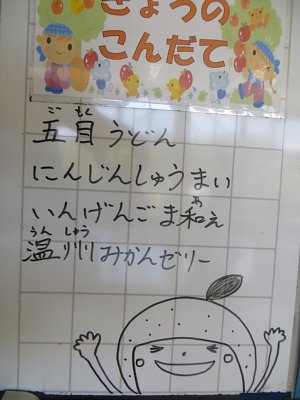 きょうの
こんだて
ご もく
五目うどん
にんじんしゅうまい
あ
いんげんごま和え
うん しゅう
温州みかんゼリー